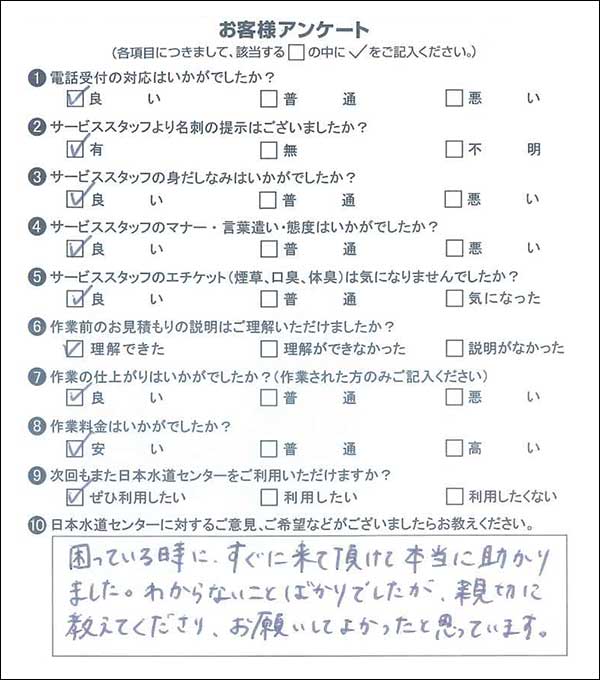 お客様アンケート
(各項目につきまして、該当する□の中に✓をご記入ください。)
❶ 電話受付の対応はいかがでしたか?
☑ 良 い □ 普 通 □ 悪 い
❷ サービススタッフより名刺の提示はございましたか?
☑ 有 □ 無 □ 不 明
❸ サービススタッフの身だしなみはいかがでしたか?
☑ 良 い □ 普 通 □ 悪 い
❹ サービススタッフのマナー・言葉遣い・態度はいかがでしたか?
☑ 良 い □ 普 通 □ 悪 い
❺ サービススタッフのエチケット(煙草、口臭、体臭)は気になりませんでしたか?
☑ 良 い □ 普 通 □ 気になった
❻ 作業前のお見積もりの説明はご理解いただけましたか?
☑ 理解できた □ 理解ができなかった □ 説明がなかった
❼ 作業の仕上がりはいかがでしたか?(作業された方のみご記入ください)
☑ 良 い □ 普 通 □ 悪 い
❽ 作業料金はいかがでしたか?
☑ 安 い □ 普 通 □ 高 い
❾ 次回もまた日本水道センターをご利用いただけますか?
☑ ぜひ利用したい □ 利用したい □ 利用したくない
❿ 日本水道センターに対するご意見、ご希望などがございましたらお教えください。
困っている時に、すぐに来て頂けて本当に助かり
ました。わからないことばかりでしたが、親切に
教えてくださり、お願いしてよかったと思っています。